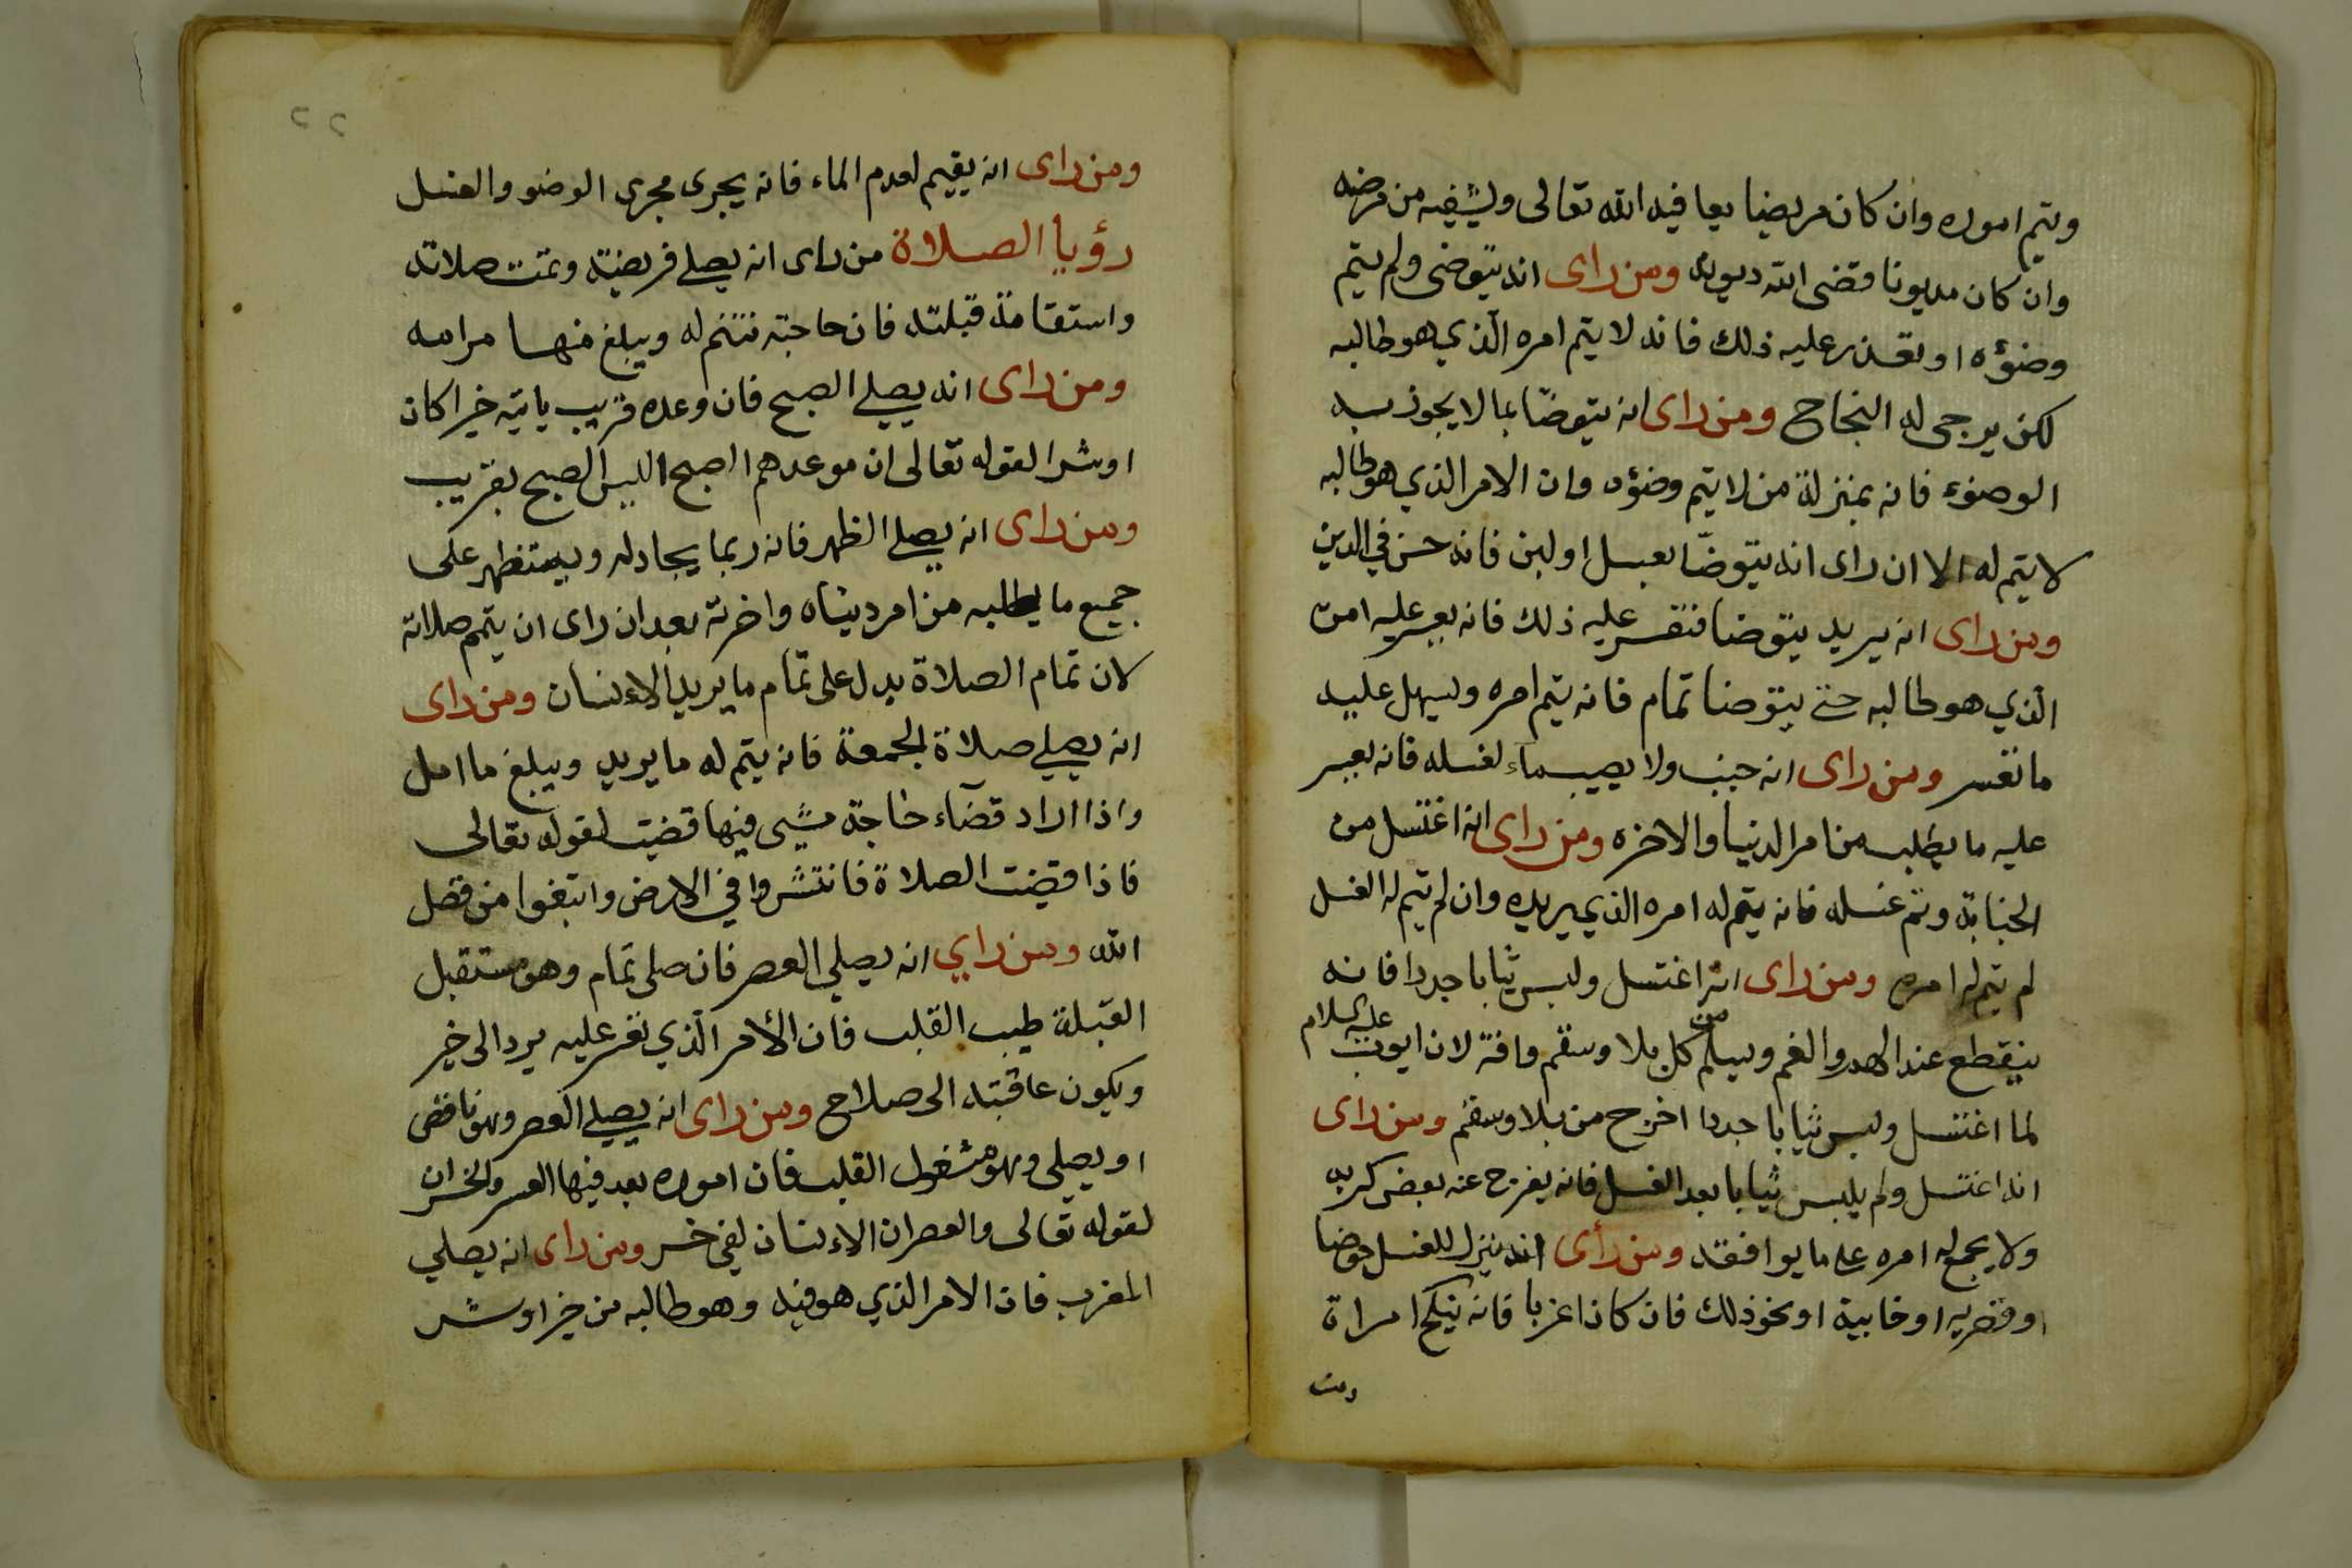 ويتم اموره وان كان مريضا يعافيه الله تعالى ويشفيه من مرضه
وان كان مديونا قضى الله ديونه ومن راى انه يتوضى ولم يتم
وضوؤه او تعذر عليه ذلك فانه لا يتم امره الذي هو طالبه
لكن يرجى له النجاح ومن راى انه يتوضا بما لا يجوز به
الوضوء فانه بمنزلة من لا يتم وضوؤه وان الامر الذي هو طالبه
لا يتم له الا ان راى انه يتوضا بعسل او لبن فانه حسن في الدين
ومن راى انه يريد يتوضا فتعسر عليه ذلك فانه يعسر عليه امره
الذي هو طالبه حتى يتوضا تمام فانه يتم امره ويسهل عليه
ما تعسر ومن راى انه جنب ولا يصيب ماء لغسله فانه يعسر
عليه ما يطلبه من امر الدنيا والاخره ومن راى انه اغتسل من
الجنابة وتم غسله فانه يتم له امره الذي يريده وان لم يتم له الغسل
لم يتم له امره ومن راى انه اغتسل ولبس ثيابا جددا فانه
ينقطع عنه الهم والغم ويسلم من كل بلا وسقم وافة لان ايوب عليه السلام
لما اغتسل ولبس ثيابا جددا اخرج من بلا وسقم ومن راى
انه اغتسل ولم يلبس ثيابا بعد الغسل فانه يفرج عنه بعض كربه
ولا يجمع له امره على ما يوافقه ومن رأى انه ينزل للغسل حوضا
او قصريه او خابية او نحو ذلك فان كان اعزبا فانه ينكح امراة
ومن
٢٢
ومن راى انه يقيم لعدم الماء فانه يجرى مجرى الوضو والغسل
رؤيا الصلاة من راى انه يصلي فريضة وتمت صلاته
واستقامة قبلته فان حاجته تتم له ويبلغ منها مرامه
ومن راى انه يصلي الصبح فان وعده قريب ياتيه خيرا كان
او شرا لقوله تعالى ان موعدهم الصبح اليس الصبح بقريب
ومن راى انه يصلي الظهر فانه ربما يجادله ويستظهر على
جميع ما يطلبه من امر دنياه واخرته بعد ان راى ان يتم صلاته
لان تمام الصلاة يدل على تمام ما يريد الانسان ومن راى
انه يصلي صلاة الجمعة فانه يتم له ما يريد ويبلغ ما امل
واذا اراد قضآء حاجة مشى فيها قضيت لقوله تعالى
فاذا قضيت الصلاة فانتشروا في الارض وابتغوا من فضل
الله ومن راي انه يصلي العصر فان صلى تمام وهو مستقبل
القبلة طيب القلب فان الأمر الذي تعسر عليه يرد الى خير
ويكون عاقبته الى صلاح ومن راى انه يصلي العصر وهو ناقص
او يصلي وهو مشغول القلب فان اموره بعد فيها العسر والخسران
لقوله تعالى والعصر ان الانسان لفي خسر ومن راى انه يصلي
المغرب فان الامر الذي هو فيه وهو طالبه من خير او شر